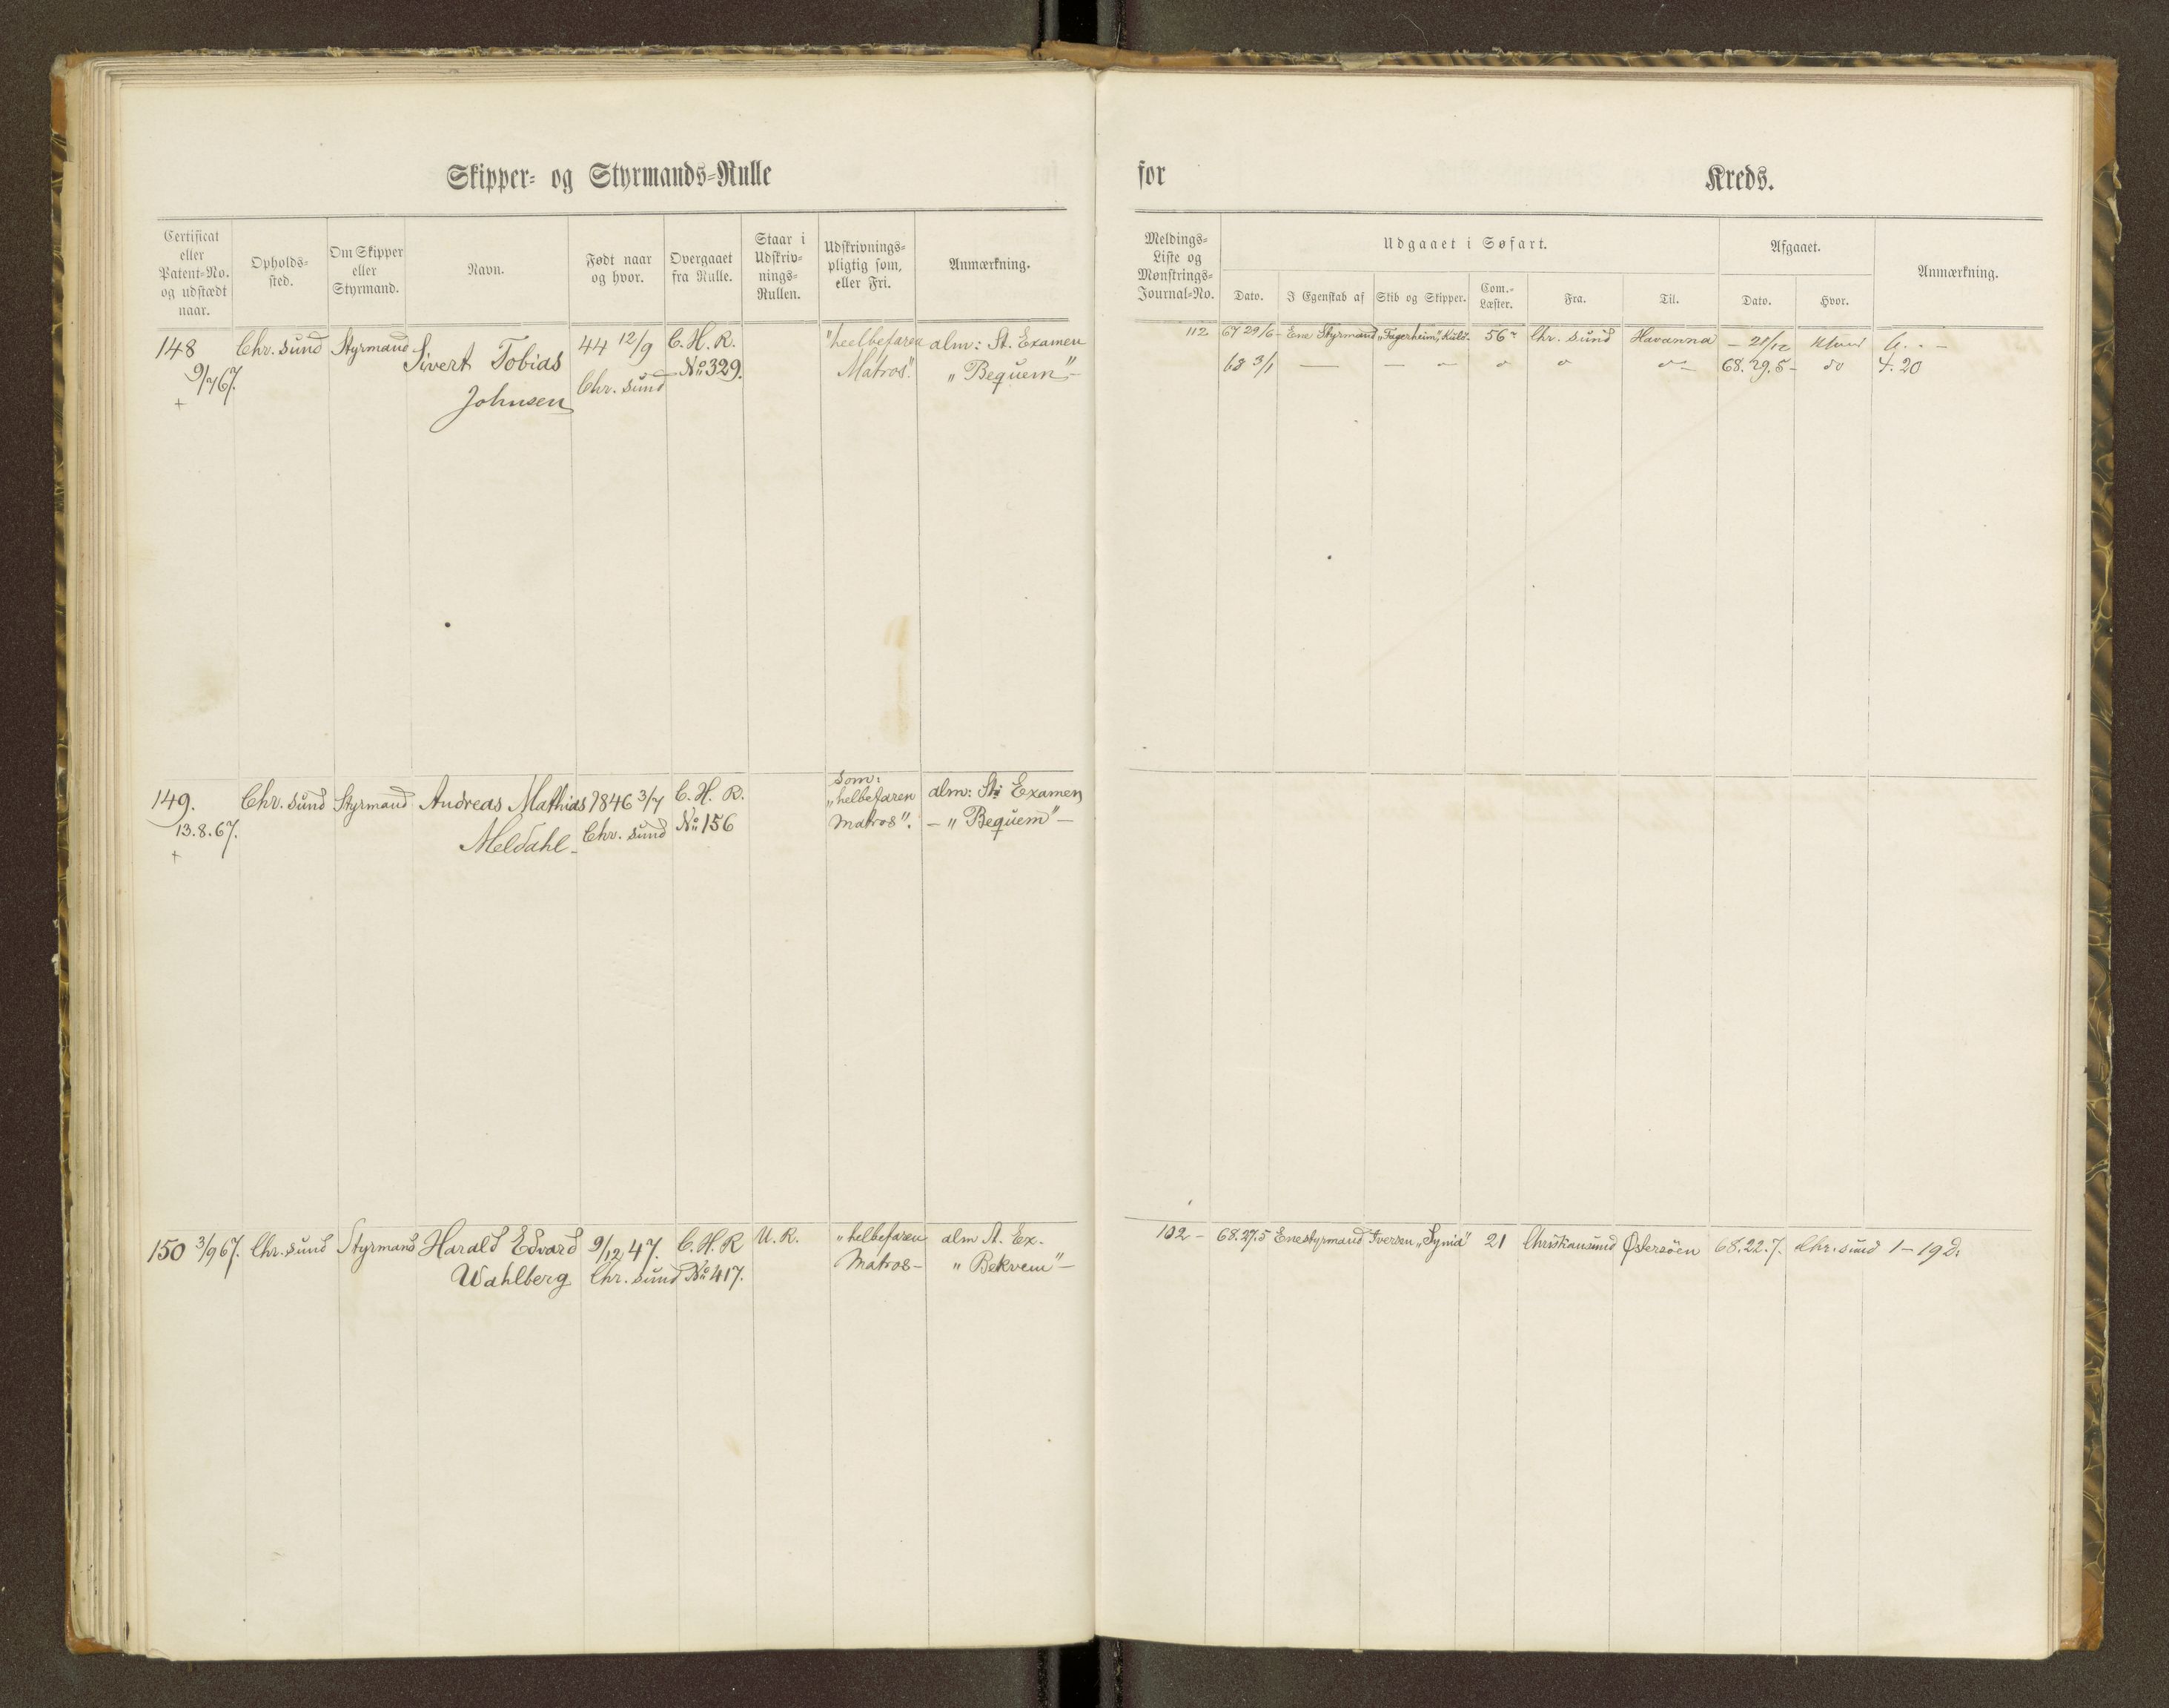 Skipper- og Styrmands-Rulle
for Kreds.
Certificat eller Patent-No. og udstædt naar.
Opholds-sted.
Om Skipper eller Styrmand.
Navn.
Født naar og hvor.
Overgaaet fra Rulle.
Staar i Udskriv-nings-Rullen.
Udskrivnings-pligtig som, eller Fri.
Anmærkning.
Meldings-Liste og Mønstrings-Journal-No.
Udgaaet i Søfart.
Dato.
I Egenskab af
Skib og Skipper.
Com.-Læster.
Fra.
Til.
Afgaaet.
Dato.
Hvor.
Anmærkning.
148 Chr. sund Styrmand Sivert Tobias 44 12/9 C. H. R. "heelbefaren alm: St. Examen
9/7 67. Johnsen Chr. sund No 329. Matros". "Bequem"-
+
112 67 29/6 - Ene Styrmand "Fagerheim", 56 Chr. sund Havanna - 21/12
68 3/1 68. 29. 5 - do 4. 20
149. Chr. sund Styrmand Andreas Mathias 1846 3/7 C. H. R. som: "helbefaren alm: St: Examen
13. 8. 67. Meldahl - Chr. sund No 156 Matros". - "Bequem" -
+
150 3/9 67. Chr. sund Styrmand Harald Edvard 9/12 47. C. H. R U. R. "helbefaren alm St. Ex.
Wahlberg Chr. sund No 417. Matros - "Bekvem" -
102 - 68. 27. 5 Enestyrmand Iversen "Synia" 21 Christiansund Østersöen 68. 22. 7. Chr. sund 1 - 19 d.